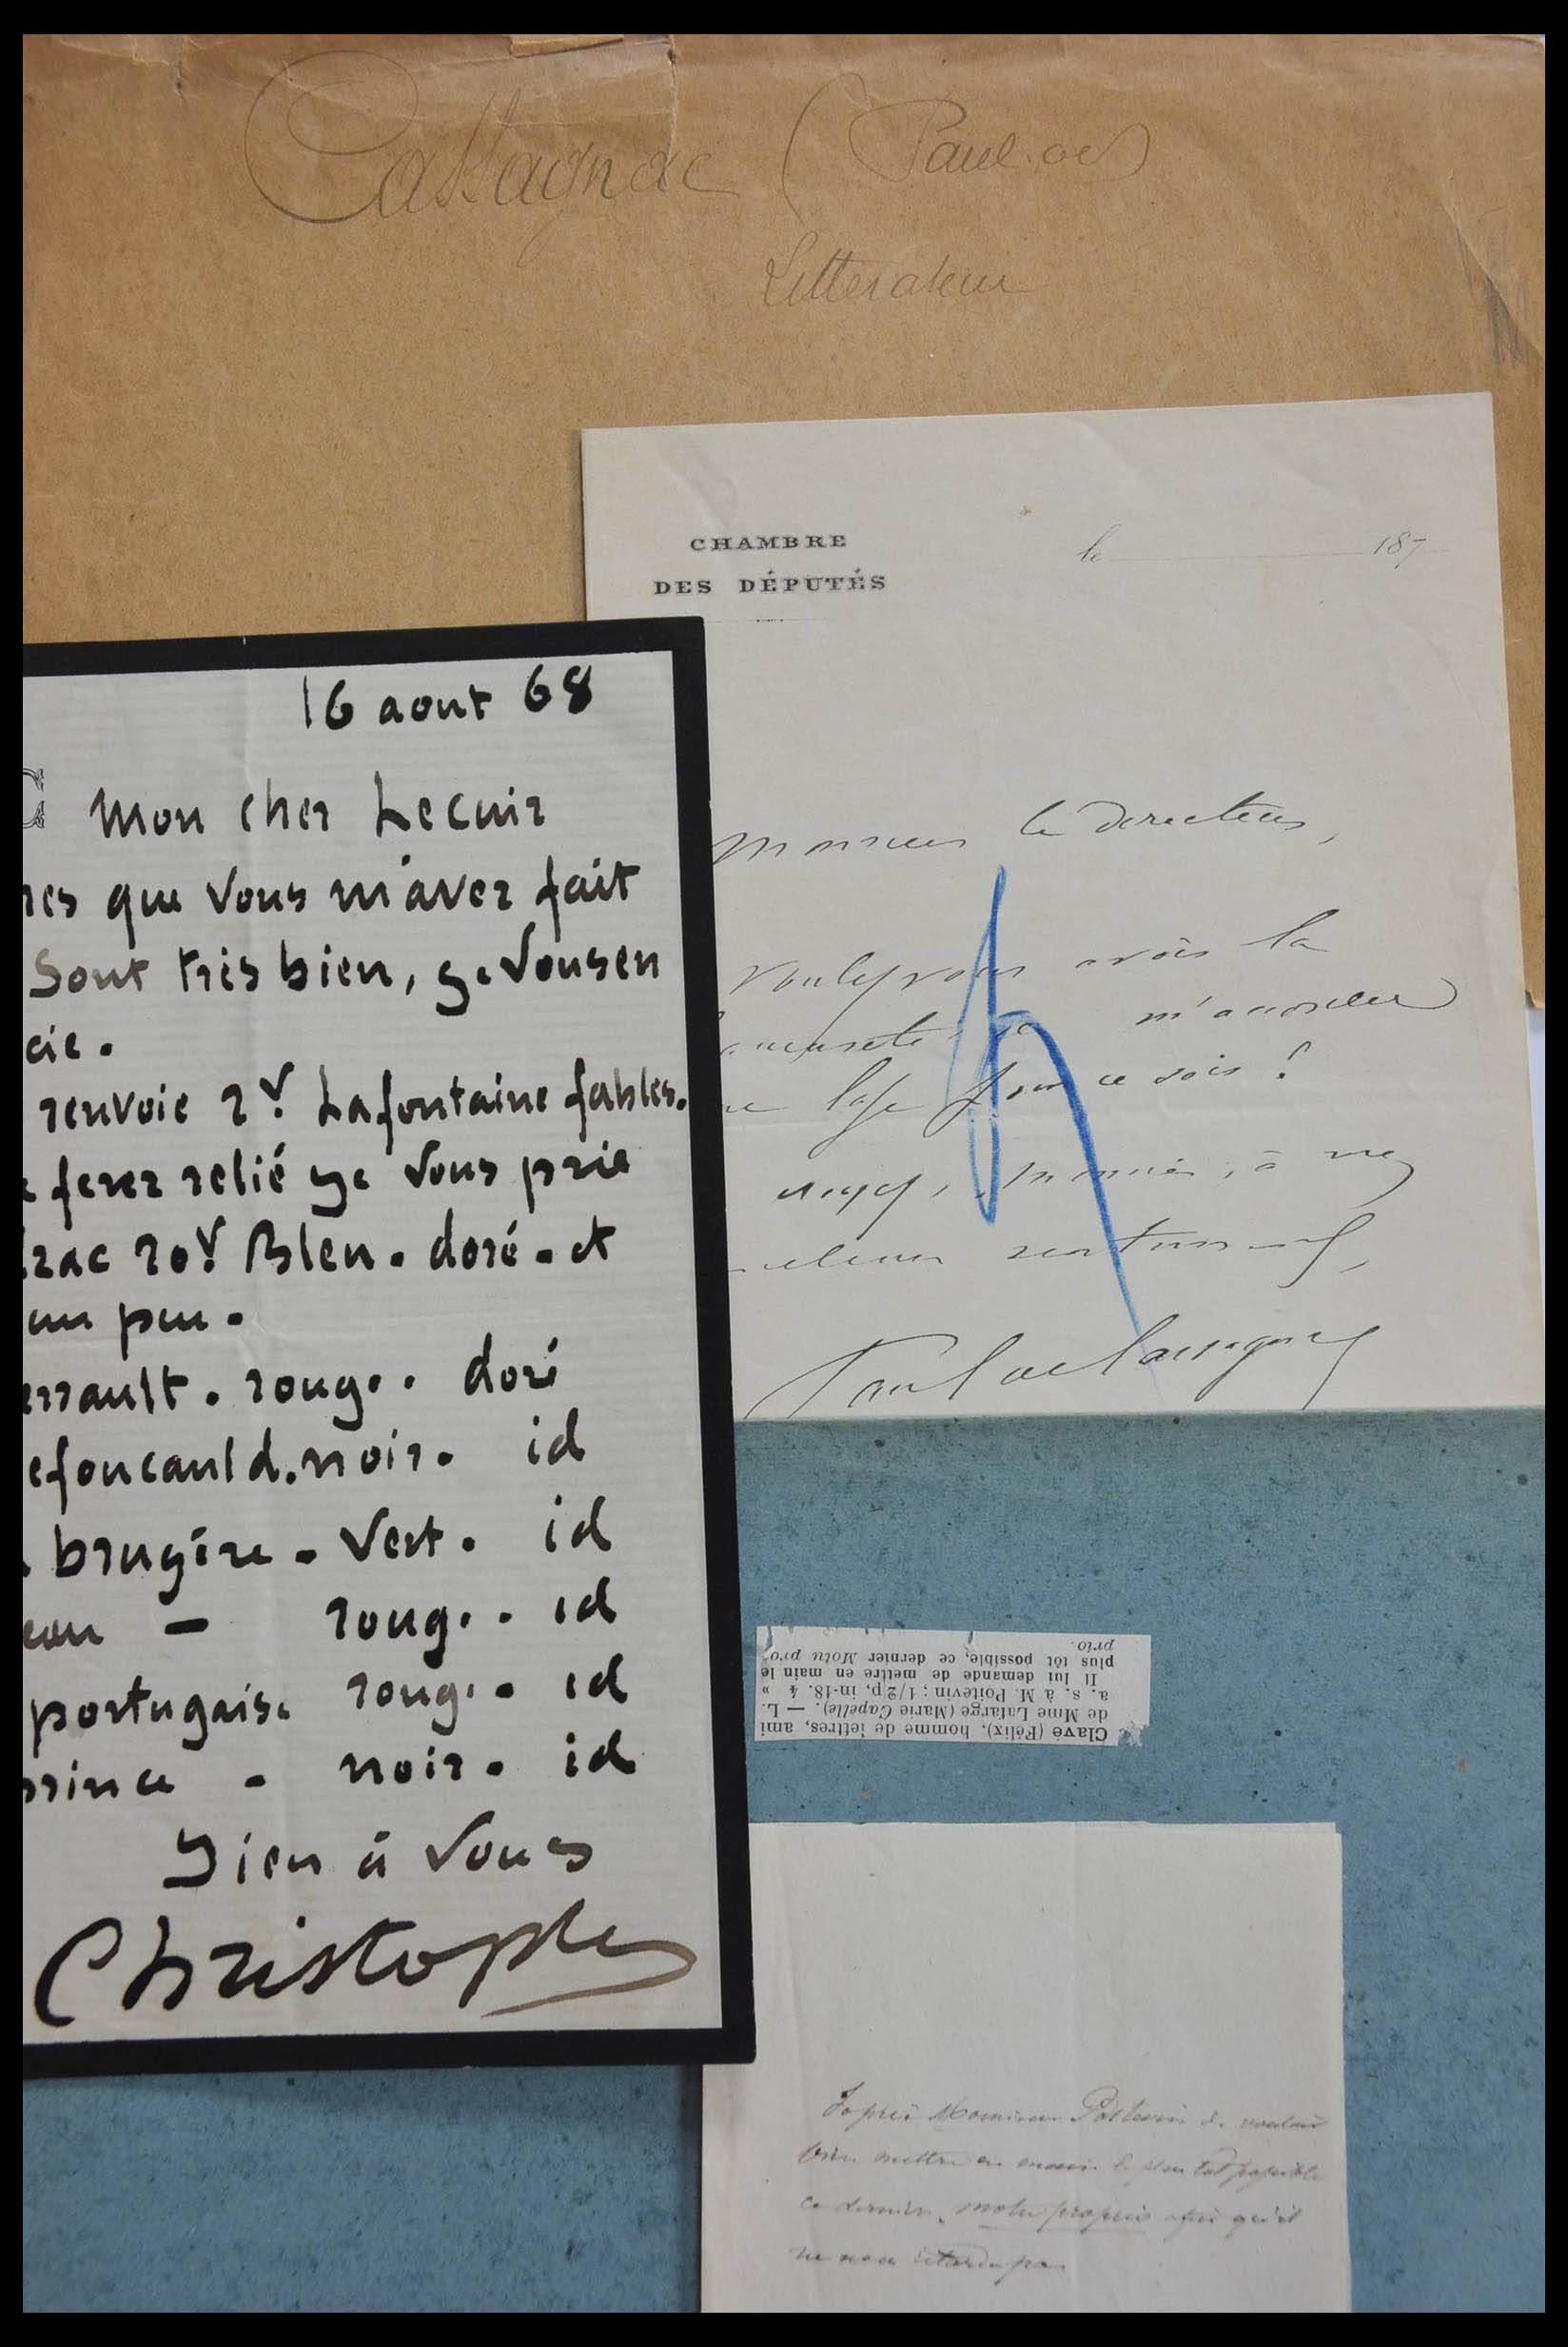 Cassagnac (Paul de)
Littérateur
CHAMBRE
DES DÉPUTÉS
le 187
Monsieur le Directeur,
Voulez vous avoir la
m'accorder
loge pour ce soir ?
Monsieur, à mes
Paul de Cassagnac
16 aout 68
C
Mon cher Lecuir
res que vous m'avez fait
Sont tres bien, ye vous en
cie.
renvoie 2v. Lafontaine fables.
ferez relié ye vous prie
zac 20v. Bleu. doré. et
un peu.
errault. rouge. doré
efoucauld. noir. id
bruyére. Vert. id
eau — rouge. id
portugaise rouge. id
prince - noir. id
Bien à vous
Christophe
Clavé (Félix), homme de lettres, ami
de Mme Lafarge (Marie Capelle). — L.
a. s. à M. Poitevin ; 1/2 p, in-18. 4 »
Il lui demande de mettre en main le
plus tôt possible, ce dernier Motu pro-
prio.
Je prie Monsieur Poitevin de vouloir
bien mettre en main le plus tot possible
ce dernier motu proprio afin qu'il
ne nous retarde pas